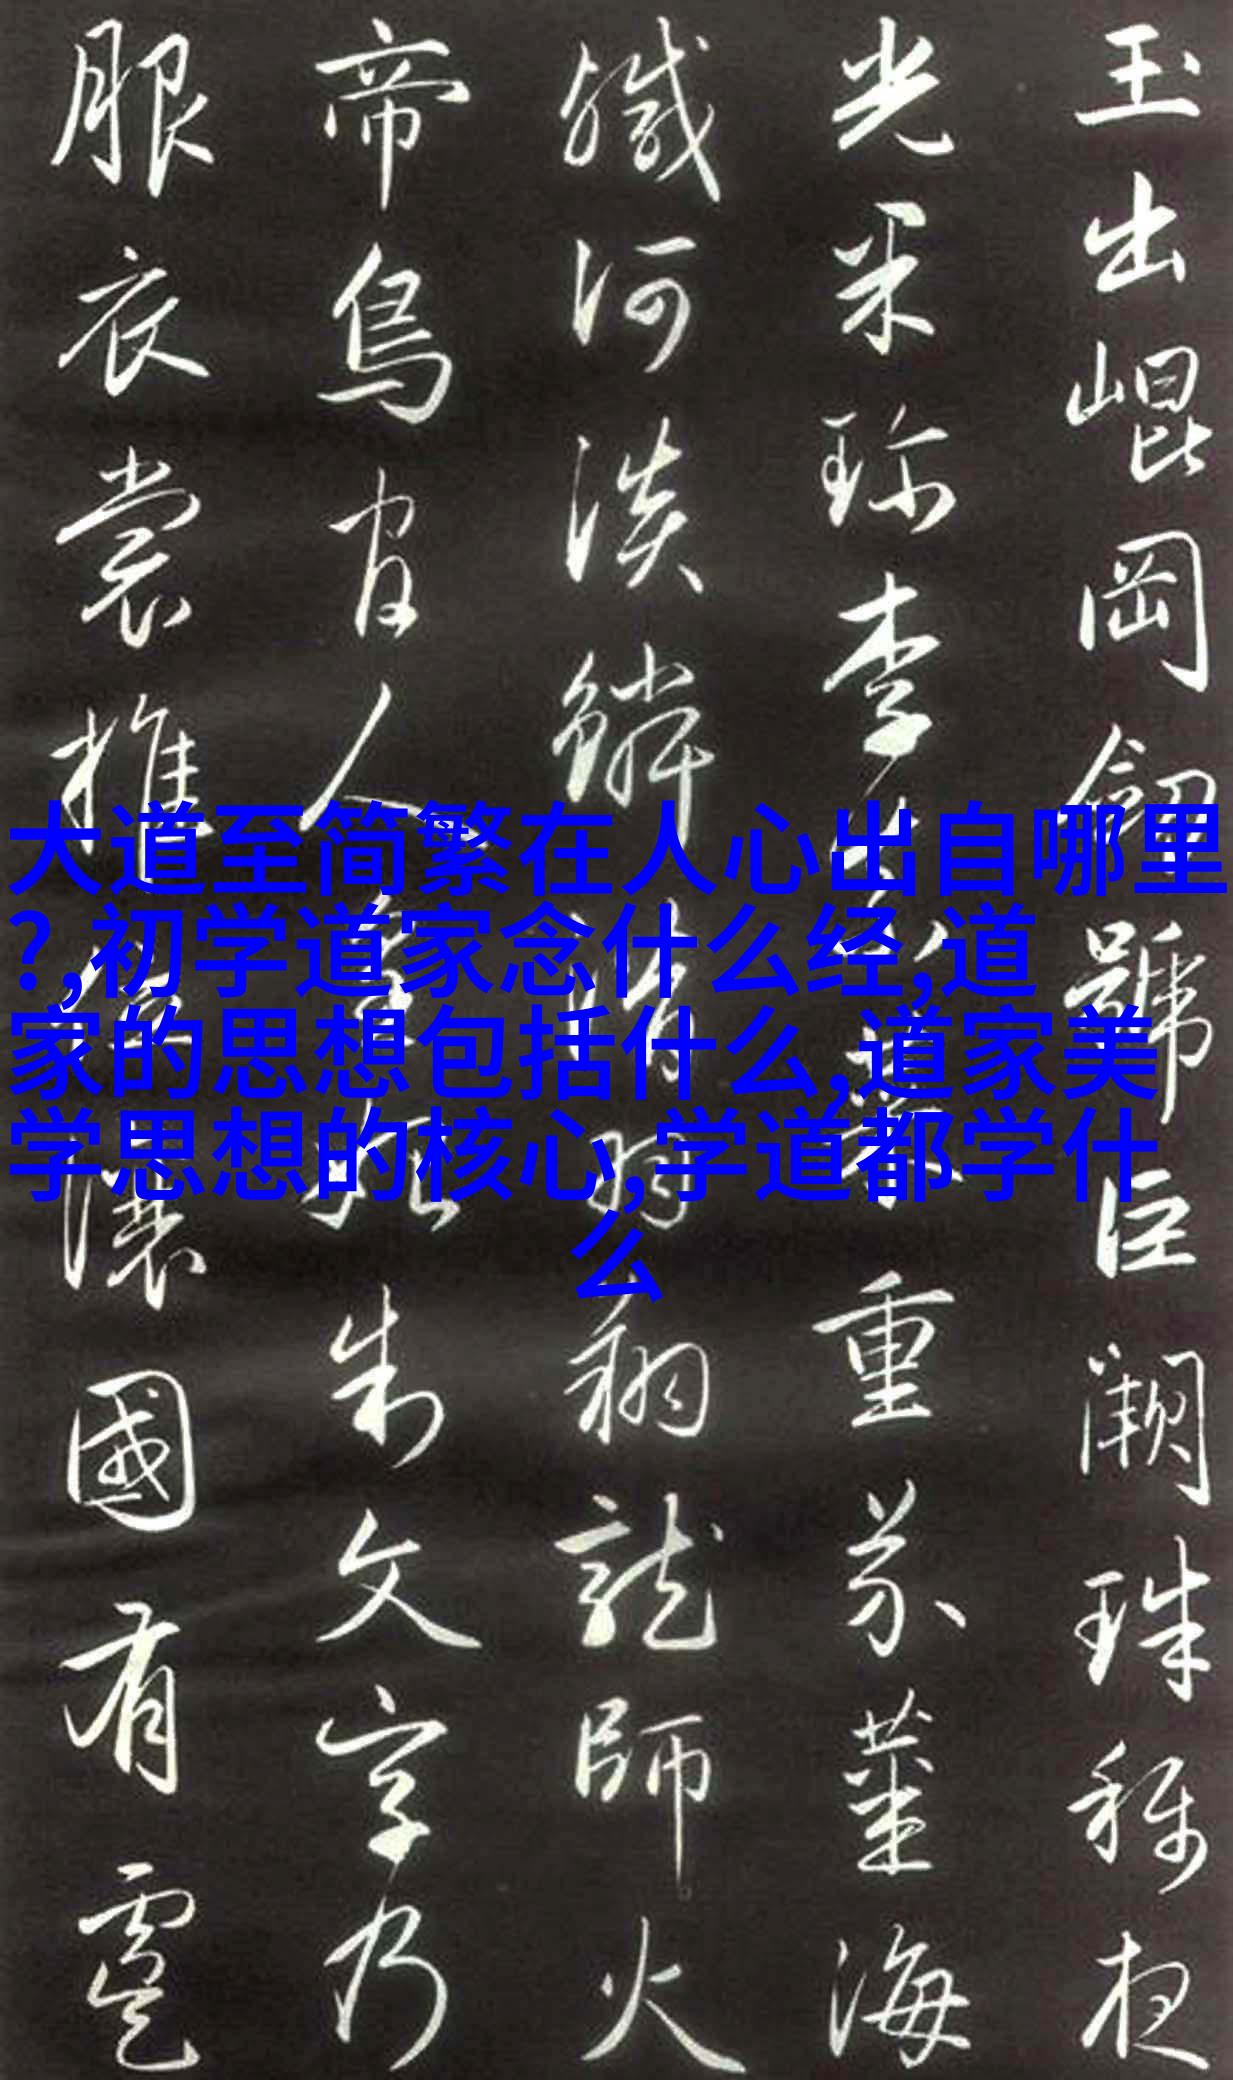 大道至简繁在人心出自哪里
?,初学道家念什么经,道
家的思想包括什么,道家美
学思想的核心,学道都学什
么
玉出崐岡劒號巨闕珠稱夜
光果珍李柰菜重芥薑海
鹹河淡鱗潛羽翔龍師火
帝鳥官人皇始制文字乃
服衣裳推位讓國有虞